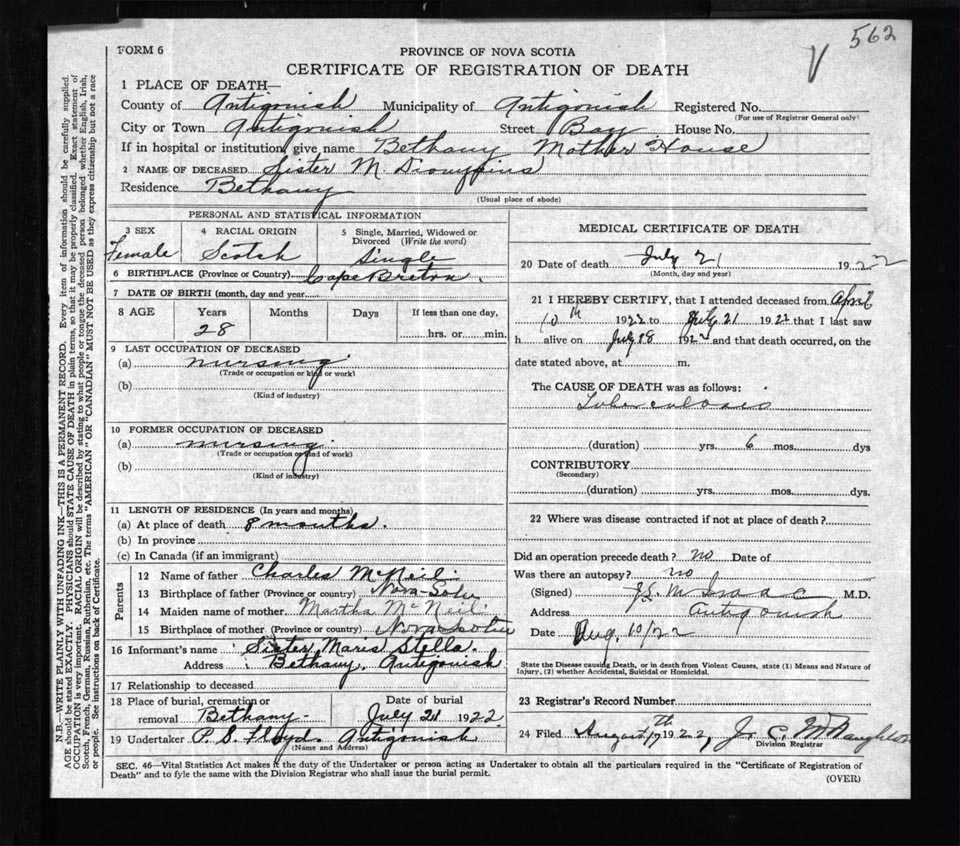 562
FORM 6
PROVINCE OF NOVA SCOTIA
CERTIFICATE OF REGISTRATION OF DEATH
1 PLACE OF DEATH—
County of Antigonish Municipality of Antigonish Registered No.
(For use of Registrar General only)
City or Town Antigonish Street Bay House No.
If in hospital or institution, give name Bethany Mother House
2 NAME OF DECEASED Sister M. Dionysius
Residence Bethany
(Usual place of abode)
PERSONAL AND STATISTICAL INFORMATION
3 SEX 4 RACIAL ORIGIN 5 Single, Married, Widowed or
Divorced (Write the word)
Female Scotch Single
6 BIRTHPLACE (Province or Country) Cape Breton.
7 DATE OF BIRTH (month, day and year)
8 AGE Years Months Days If less than one day,
28 hrs. or min.
9 LAST OCCUPATION OF DECEASED
(a) nursing
(Trade or occupation or kind or work)
(b)
(Kind of industry)
10 FORMER OCCUPATION OF DECEASED
(a) nursing
(Trade or occupation or kind of work)
(b)
(Kind of industry)
11 LENGTH OF RESIDENCE (In years and months)
(a) At place of death 8 months.
(b) In province
(c) In Canada (if an immigrant)
Parents
12 Name of father Charles McNeil
13 Birthplace of father (Province or country)
14 Maiden name of mother Martha McNeil
15 Birthplace of mother (Province or country) Nova Scotia
16 Informant's name Sister Maris Stella.
Address Bethany, Antigonish
17 Relationship to deceased
18 Place of burial, cremation or Date of burial
removal Bethany July 21 1922
19 Undertaker P. S. Floyd. Antigonish
(Name and Address)
MEDICAL CERTIFICATE OF DEATH
20 Date of death July 21 1922
(Month, day and year)
21 I HEREBY CERTIFY, that I attended deceased from April
10th 1922 to July 21 1922 that I last saw
h alive on July 18 1922 and that death occurred, on the
date stated above, at m.
The CAUSE OF DEATH was as follows:
Tuberculosis
(duration) yrs. 6 mos. dys
CONTRIBUTORY
(Secondary)
(duration) yrs. mos. dys.
22 Where was disease contracted if not at place of death?
Did an operation precede death? no Date of
Was there an autopsy? no
(Signed) M.D.
Address Antigonish
Date Aug. 10/22
State the Disease causing Death, or in death from Violent Causes, state (1) Means and Nature of
Injury, (2) whether Accidental, Suicidal or Homicidal.
23 Registrar's Record Number
24 Filed August 17th 1922, J. C. McNaughton
Division Registrar
SEC. 46—Vital Statistics Act makes it the duty of the Undertaker or person acting as Undertaker to obtain all the particulars required in the "Certificate of Registration of
Death" and to fyle the same with the Division Registrar who shall issue the burial permit.
(OVER)
N.B.—WRITE PLAINLY WITH UNFADING INK—THIS IS A PERMANENT RECORD. Every item of information should be carefully supplied.
AGE should be stated EXACTLY. PHYSICIANS should STATE CAUSE OF DEATH in plain terms, so that it may be properly classified. Exact statement of
OCCUPATION is very important. RACIAL ORIGIN will be described by stating to what people or tongue the deceased person belonged whether English, Irish,
Scotch, French, German, Russian, Ruthenian, etc. The terms "AMERICAN" OR "CANADIAN" MUST NOT BE USED as they express citizenship but not a race
or people. See instructions on back of Certificate.